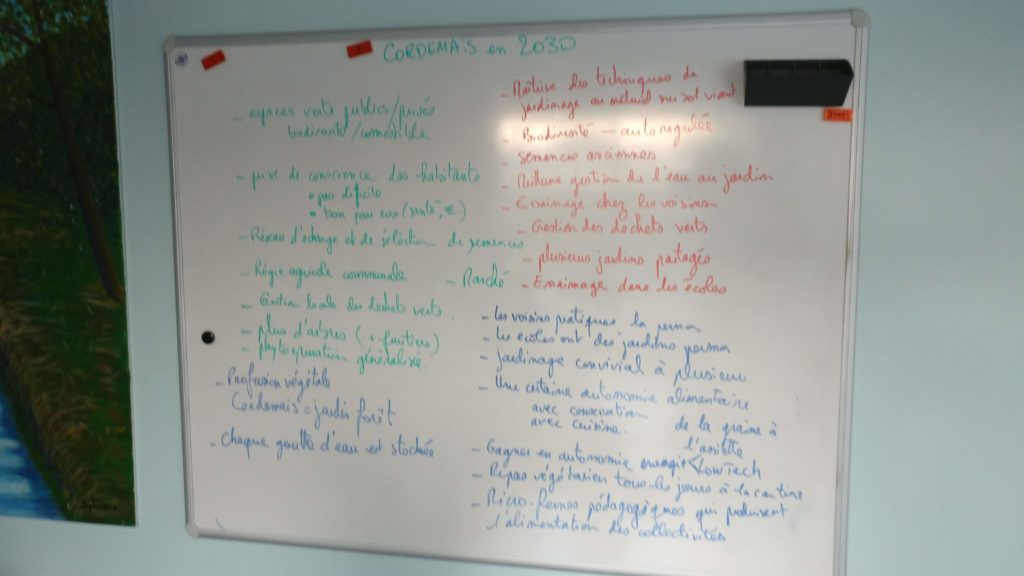 CORDEMAIS en 2030
- espaces verts publics/privés
biodiversité/comestible
- prise de conscience des habitants
• pas difficile
• bon pour eux (santé, €)
- Réseau d'échange et de sélection de semences
- Régie agricole communale - Marché
- Gestion locale des déchets verts.
- plus d'arbres (+ fruitiers)
- phytoépuration généralisé.
- Profusion végétale
Cordemais = jardin forêt
- Chaque goutte d'eau est stockée
- Maîtrise des techniques de
jardinage au naturel sur sol vivant
- Biodiversité - autorégulée
- semences anciennes
- Meilleure gestion de l'eau au jardin
- Essaimage chez les voisins
- Gestion des déchets verts
- plusieurs jardins partagés
- Essaimage dans les écoles
- Les voisins pratiques la perma
- Les écoles ont des jardins perma
- jardinage convivial à plusieur
- Une certaine autonomie alimentaire
avec conservation
avec cuisine.
de la graine à
l'assiette
- Gagner en autonomie energie LowTech
- Repas végétarien tous les jours à la cantine
- Micro-fermes pédagogiques qui produisent
l'alimentation des collectivités